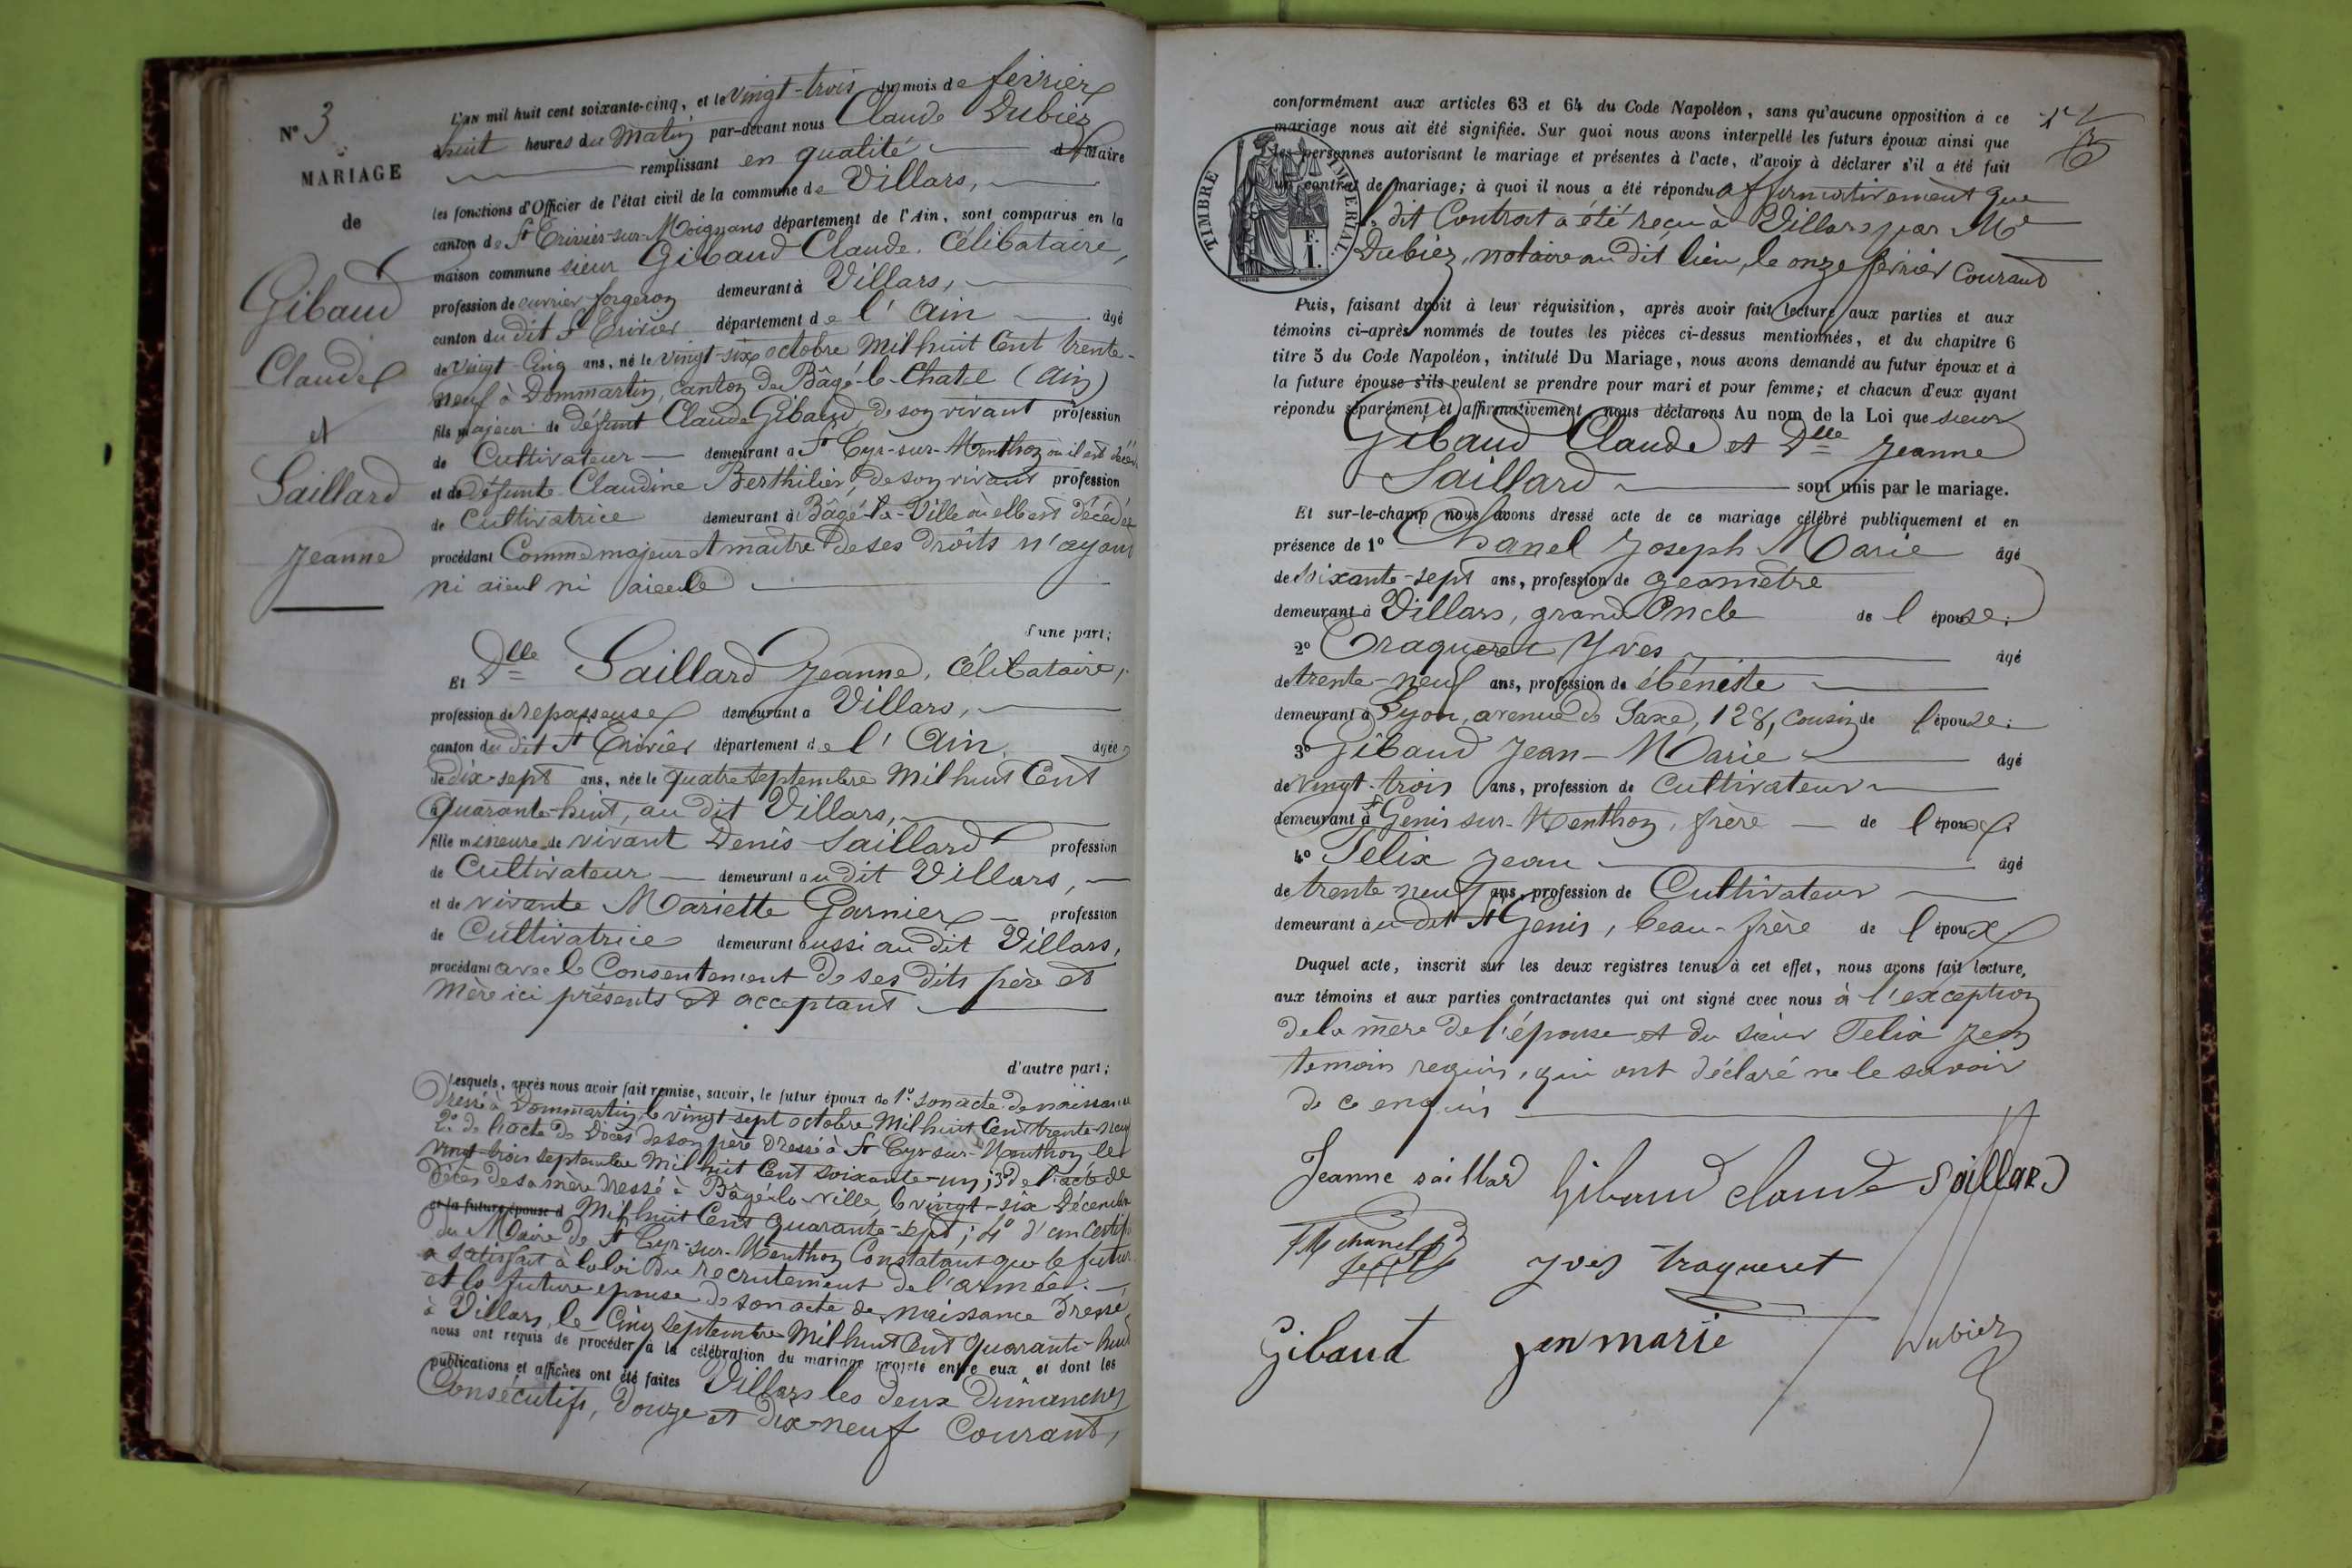 N° 3
MARIAGE
de
Gibaud
Claude
et
Saillard
Jeanne
L'an mil huit cent soixante-cinq, et le vingt-trois du mois de février
à huit heures du Matin par-devant nous Claude Dubiez
remplissant en qualité de Maire
les fonctions d'Officier de l'état civil de la commune de Villars,
canton de St Trivier-sur-Moignans département de l'Ain, sont comparus en la
maison commune sieur Gibaud Claude, Célibataire,
profession de ouvrier forgeron demeurant à Villars,
canton du dit St Trivier département de l'Ain âgé
de vingt-Cinq ans, né le vingt-six octobre Mil huit Cent trente-
neuf à Dommartin, Canton de Bâgé-le-Chatel (Ain)
fils majeur de défunt Claude Gibaud de son vivant profession
de Cultivateur demeurant à St Cyr-sur-Menthon où il est décédé
et de défunte Claudine Berthilier, de son vivant profession
de Cultivatrice demeurant à Bâgé-la-Ville où elle est décédée
procédant Comme majeur et maître de ses droits n'ayant
ni aïeul ni aieule
d'une part;
Et Dlle Saillard Jeanne, Célibataire,
profession de repasseuse demeurant à Villars,
canton du dit St Trivier département de l'Ain, âgée
de dix-sept ans, née le quatre Septembre Mil huit Cent
quarante-huit, au dit Villars,
fille mineure de vivant Denis Saillard profession
de Cultivateur demeurant au dit Villars,
et de vivante Mariette Garnier profession
de Cultivatrice demeurant aussi au dit Villars,
procédant avec le Consentement de ses dits père et
Mère ici présents et acceptant
d'autre part;
Lesquels, après nous avoir fait remise, savoir, le futur époux de 1° son acte de naissance
dressé à Dommartin le vingt sept octobre Mil huit Cent trente-neuf
2° de l'acte de décès de son père dressé à St Cyr-sur-Menthon le
vingt-trois septembre Mil huit Cent soixante-un; 3° de l'acte de
décès de sa mère dressé à Bâgé-la-ville, le vingt-six Décembre
et la future épouse d Mil huit Cent quarante-sept; 4° d'un Certif.
du Maire de St Cyr-sur-Menthon Constatant que le futur
a satisfait à la loi du recrutement de l'armée;
et la future épouse de son acte de naissance dressé
à Villars, le Cinq Septembre Mil huit Cent quarante-huit
nous ont requis de procéder à la célébration du mariage projeté entre eux, et dont les
publications et affiches ont été faites Villars les deux Dimanches
Consécutifs, douze et dix-neuf Courant,
TIMBRE IMPERIAL
F.
1.
conformément aux articles 63 et 64 du Code Napoléon, sans qu'aucune opposition à ce
mariage nous ait été signifiée. Sur quoi nous avons interpellé les futurs époux ainsi que
les personnes autorisant le mariage et présentes à l'acte, d'avoir à déclarer s'il a été fait
un contrat de mariage; à quoi il nous a été répondu affirmativement que
le dit Contrat a été reçu à Villars par Me
Dubiez, notaire au dit lieu, le onze février Courant
Puis, faisant droit à leur réquisition, après avoir fait lecture aux parties et aux
témoins ci-après nommés de toutes les pièces ci-dessus mentionnées, et du chapitre 6
titre 5 du Code Napoléon, intitulé Du Mariage, nous avons demandé au futur époux et à
la future épouse s'ils veulent se prendre pour mari et pour femme; et chacun d'eux ayant
répondu séparément et affirmativement, nous déclarons Au nom de la Loi que sieur
Gibaud Claude et Dlle Jeanne
Saillard sont unis par le mariage.
Et sur-le-champ nous avons dressé acte de ce mariage célébré publiquement et en
présence de 1° Chanel Joseph Marie âgé
de soixante-sept ans, profession de géomètre
demeurant à Villars, grand Oncle de l'épouse;
2° Traqueret Yves âgé
de trente-neuf ans, profession de ébéniste
demeurant à Lyon, avenue de Saxe, 128, Cousin de l'épouse;
3° Gibaud Jean-Marie âgé
de vingt-trois ans, profession de Cultivateur
demeurant à St Genis sur-Menthon, frère de l'époux;
4° Felix Jean âgé
de trente-neuf ans, profession de Cultivateur
demeurant au dit St Genis, beau-frère de l'époux
Duquel acte, inscrit sur les deux registres tenus à cet effet, nous avons fait lecture,
aux témoins et aux parties contractantes qui ont signé avec nous à l'exception
de la mère de l'épouse et du sieur Felix Jean
temoin requis, qui ont déclaré ne le savoir
de ce enquis
Jeanne saillard Gibaud claude Saillard
JM chanel
yves traqueret
Gibaud Jan marie
Dubiez